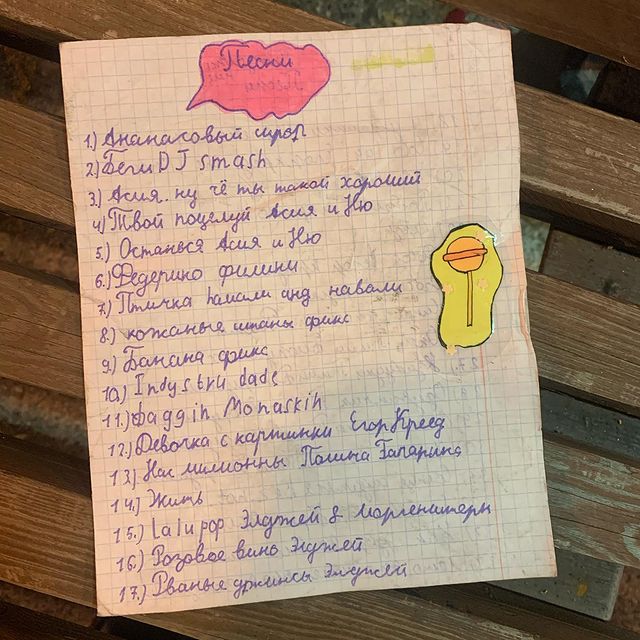 Песни
1.) Ананасовый сироп
2.) Беги DJ smash
3.) Асия.. ну чё ты такой хороший
4) Твой поцелуй Асия и Ню
5.) Останься Асия и Ню
6.) Федерико филини
7.) Птичка hамали анд навали
8.) кожаные штаны фикс
9.) Банана фикс
10) Indystry dade
11.) Baggin Monaskin
12.) Девочка с картинки Егор Креед
13.) Нас миллионны Полина Гагарина
14.) Жить
15.) Lalipop Элджей & Моргенштерн
16.) Розовое вино Элджей
17.) Рваные джинсы Элджей